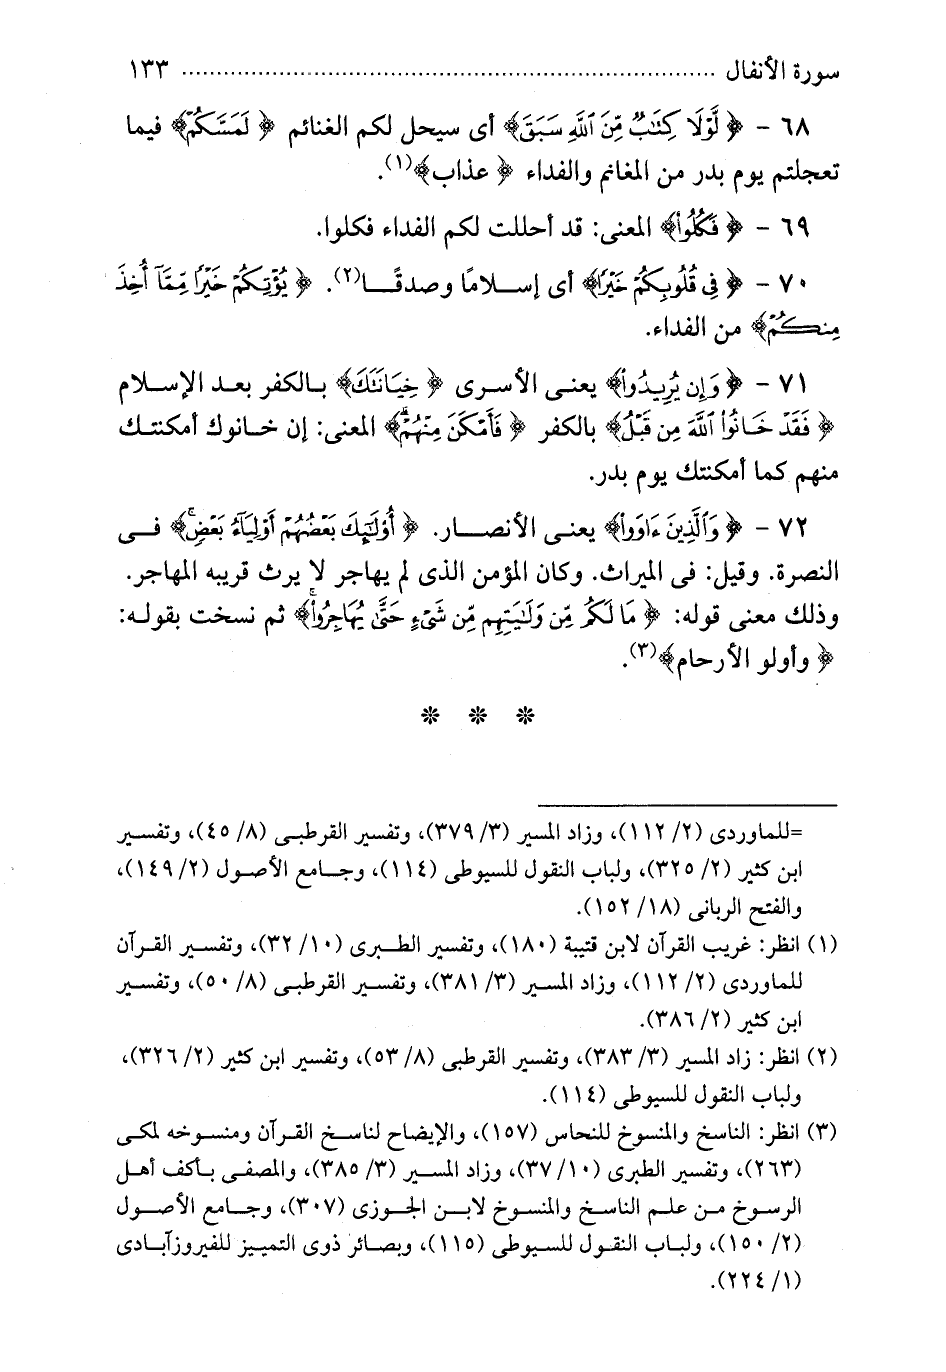 سورة الأنفال ........................................................................... ١٣٣
٦٨ - ﴿ لَّوْلَا كِتَٰبٌ مِّنَ ٱللَّهِ سَبَقَ﴾ أى سيحل لكم الغنائم ﴿ لَمَسَّكُمْ﴾ فيما
تعجلتم يوم بدر من المغانم والفداء ﴿ عذاب﴾(١).
٦٩ - ﴿ فَكُلُوا۟﴾ المعنى: قد أحللت لكم الفداء فكلوا.
٧٠ - ﴿ فِى قُلُوبِكُمْ خَيْرًا﴾ أى إسـلامًا وصدقًـا(٢). ﴿ يُؤْتِكُمْ خَيْرًا مِّمَّآ أُخِذَ
مِنكُمْ﴾ من الفداء.
٧١ - ﴿ وَإِن يُرِيدُوا۟﴾ يعنـى الأسرى ﴿ خِيَانَتَكَ﴾ بـالكفر بعـد الإسـلام
﴿ فَقَدْ خَانُوا۟ ٱللَّهَ مِن قَبْلُ﴾ بالكفر ﴿ فَأَمْكَنَ مِنْهُمْ﴾ المعنى: إن خـانوك أمكنتـك
منهم كما أمكنتك يوم بدر.
٧٢ - ﴿ وَٱلَّذِينَ ءَاوَوا۟﴾ يعنـى الأنصـار. ﴿ أُو۟لَٰٓئِكَ بَعْضُهُمْ أَوْلِيَآءُ بَعْضٍ﴾ فـى
النصرة. وقيل: فى الميراث. وكان المؤمن الذى لم يهاجر لا يرث قريبه المهاجر.
وذلك معنى قوله: ﴿ مَا لَكُم مِّن وَلَٰيَتِهِم مِّن شَىْءٍ حَتَّىٰ يُهَاجِرُوا۟﴾ ثم نسخت بقولـه:
﴿ وأولو الأرحام﴾(٣).
* * *
=للماوردى (٢/ ١١٢)، وزاد المسير (٣/ ٣٧٩)، وتفسير القرطبـى (٨/ ٤٥)، وتفسـير
ابن كثير (٢/ ٣٢٥)، ولباب النقول للسيوطى (١١٤)، وجـامع الأصـول (٢/ ١٤٩)،
والفتح الربانى (١٨/ ١٥٢).
(١) انظر: غريب القرآن لابن قتيبة (١٨٠)، وتفسير الطـبرى (١٠/ ٣٢)، وتفسير القـرآن
للماوردى (٢/ ١١٢)، وزاد المسـير (٣/ ٣٨١)، وتفسـير القرطبـى (٨/ ٥٠)، وتفسـير
ابن كثير (٢/ ٣٨٦).
(٢) انظر: زاد المسير (٣/ ٣٨٣)، وتفسير القرطبى (٨/ ٥٣)، وتفسير ابن كثير (٢/ ٣٢٦)،
ولباب النقول للسيوطى (١١٤).
(٣) انظر: الناسخ والمنسوخ للنحاس (١٥٧)، والإيضاح لناسـخ القـرآن ومنسـوخه لمكـى
(٢٦٣)، وتفسير الطبرى (١٠/ ٣٧)، وزاد المسـير (٣/ ٣٨٥)، والمصفـى بـأكف أهـل
الرسـوخ مـن علـم الناسـخ والمنسـوخ لابـن الجـوزى (٣٠٧)، وجـامع الأصـول
(٢/ ١٥٠)، ولبـاب النقـول للسـيوطى (١١٥)، وبصـائر ذوى التميـيز للفيروزآبـادى
(١/ ٢٢٤).